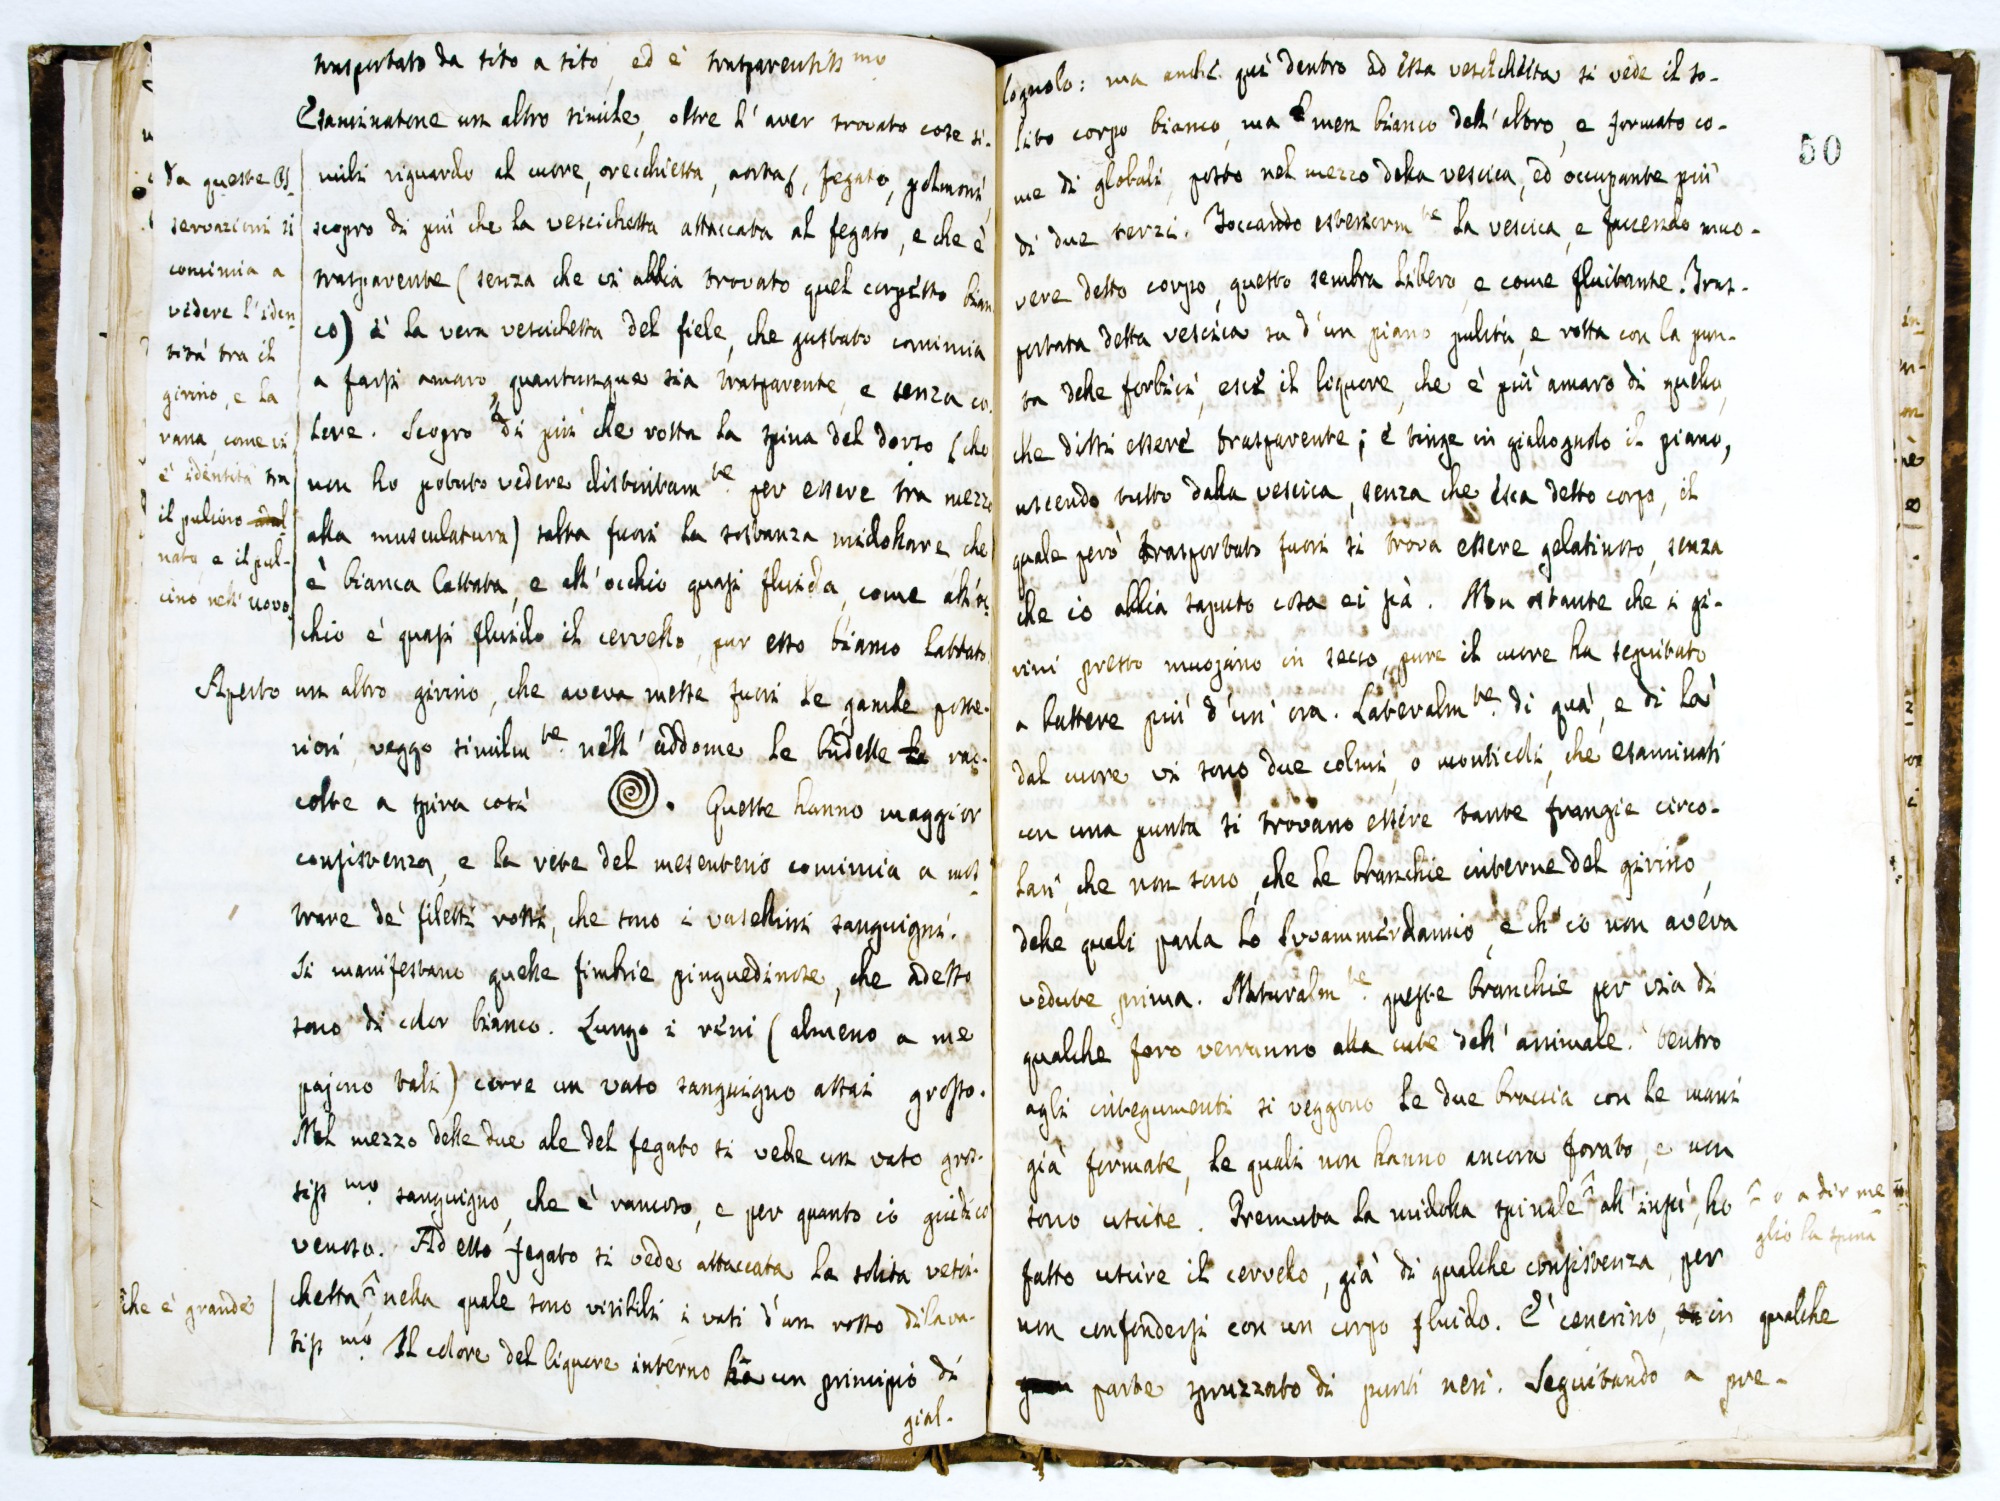 trasportato da sito a sito, ed è trasparentiss mo
Esaminatone un altro simile, oltre l'aver trovato cose si-
mili riguardo al cuore, orecchietta, aorta, fegato, polmoni,
scopro di più che la vescichetta attaccata al fegato, e che è
trasparente (senza che vi abbia trovato quel corpetto bian
co) è la vera vescichetta del fiele, che gustato comincia
a farsi amaro, quantunque sia trasparente, e senza co-
lore. Scopro di più che rotta la spina del dorso (che
non ho potuto vedere distintam te per essere tra mezzo
alla musculatura) salta fuori la sostanza midollare, che
è bianca lattata, e all'occhio quasi fluida, come all'oc
chio è quasi fluido il cervello, pur esso bianco lattato
Aperto un altro girino, che aveva messe fuori le gambe poste-
riori, veggo similm te nell'addome le budelle le rac-
colte a spira così . Queste hanno maggior
consistenza, e la rete del mesenterio comincia a mos
trare de' filetti rossi, che sono i vasellini sanguigni.
Si manifestano quelle fimbrie pinguedinose, che adesso
sono di color bianco. Lungo i reni (almeno a me
pajono tali) corre un vaso sanguigno assai grosso.
Nel mezzo delle due ale del fegato si vede un vaso gros-
siss mo sanguigno, che è ramoso, e per quanto io giudico
venoso. Ad esso fegato si vede attaccata la solita vesci-
chetta ^ nella quale sono visibili i vasi d'un rosso dilava-
tiss mo. Il colore del liquore interno ha un principio di
gial-
da queste Os-
servazioni si
comincia a
vedere l'iden
tità tra il
girino, e la
rana, come vi
è identità tra
il pulcino
nato, e il pul-
cino nell'uovo
^che è grande
50
lognolo: ma anche quì dentro ad essa vescichetta si vede il so-
lito corpo bianco, ma men bianco dell'altro, e formato co-
me di globoli, posto nel mezzo della vescica, ed occupante più
di due terzi. Toccando esteriorm te la vescica, e facendo muo-
vere detto corpo, questo sembra libero, e come fluitante. Tras-
portata detta vescica su d'un piano pulito, e rotta con la pun-
ta delle forbici, esce il liquore, che è più amaro di quello,
che dissi essere trasparente; e tinge in giallognolo il piano,
uscendo tutto dalla vescica, senza che esca detto corpo, il
quale però trasportato fuori si trova essere gelatinoso, senza
che io abbia saputo cosa ei sia. Non ostante che i gi-
rini presto muojano in secco, pure il cuore ha seguitato
a battere più d'un'ora. Lateralm te di quà, e di là
dal cuore vi sono due colmi, o monticoli, che esaminati
con una punta si trovano essere tante frangie circo-
lari, che non sono, che le branchie interne del girino,
delle quali parla lo Swammerdamio, e ch'io non aveva
vedute prima. Naturalm te queste branchie per via di
qualche foro verranno alla cute dell'animale. Dentro
agli integumenti si veggono le due braccia con le mani
già formate, le quali non hanno ancora forato, e non
sono uscite. Premuta la midolla spinale ^ all'insù, ho
fatto uscire il cervello, già di qualche consistenza, per
non confondersi con un corpo fluido. E' cenerino, in qualche
parte spruzzato di punti neri. Seguitando a pre-
^ o a dir me
glio la spina